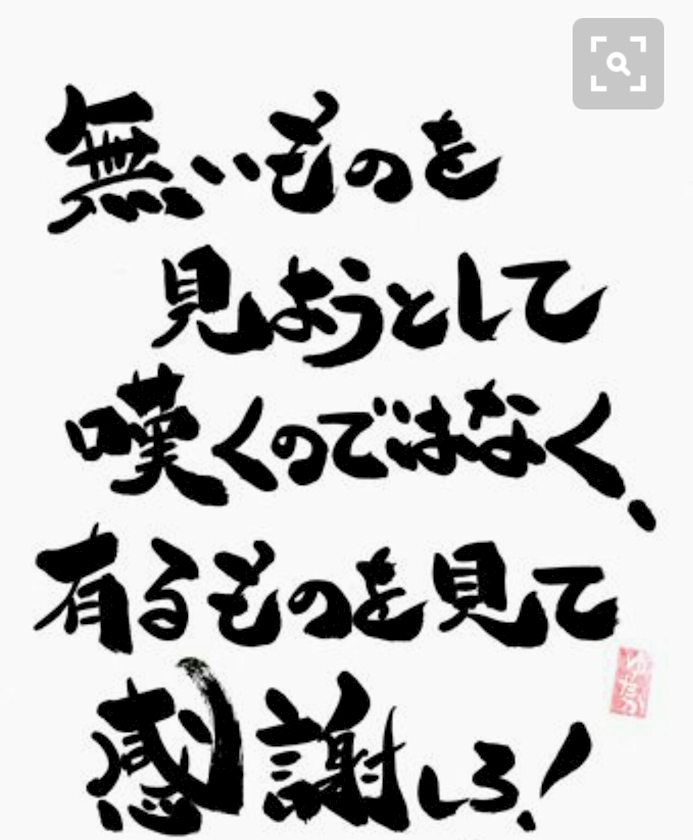 無いものを
見ようとして
嘆くのではなく、
有るものを見て
感謝しろ!
ゆたか